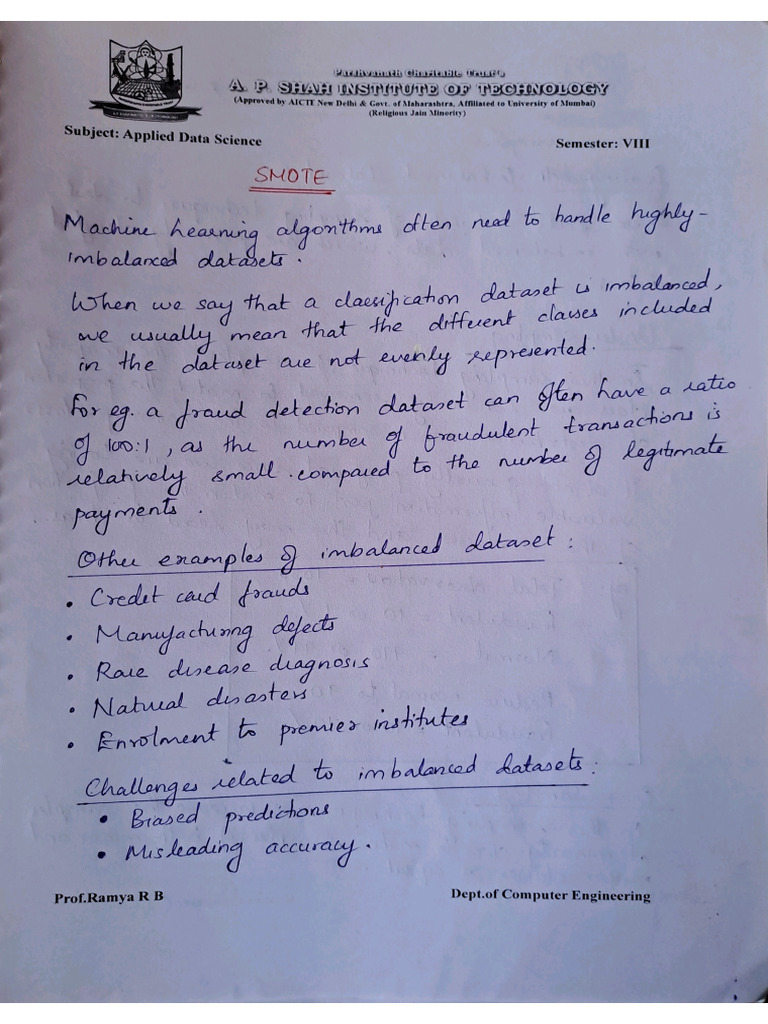 Parshvanath Charitable Trust's
A. P. SHAH INSTITUTE OF TECHNOLOGY
(Approved by AICTE New Delhi & Govt. of Maharashtra, Affiliated to University of Mumbai)
(Religious Jain Minority)
Subject: Applied Data Science
Semester: VIII
SMOTE
Machine Learning algorithms often need to handle highly-
imbalanced datasets.
When we say that a classification dataset is imbalanced,
we usually mean that the different classes included
in the dataset are not evenly represented.
For eg. a fraud detection dataset can often have a ratio
of 100:1, as the number of fraudulent transactions is
relatively small compared to the number of legitimate
payments.
Other examples of imbalanced dataset:
• Credit card frauds
• Manufacturing defects
• Rare disease diagnosis
• Natural disasters
• Enrolment to premier institutes
Challenges related to imbalanced datasets:
• Biased predictions
• Misleading accuracy.
Prof.Ramya R B
Dept.of Computer Engineering